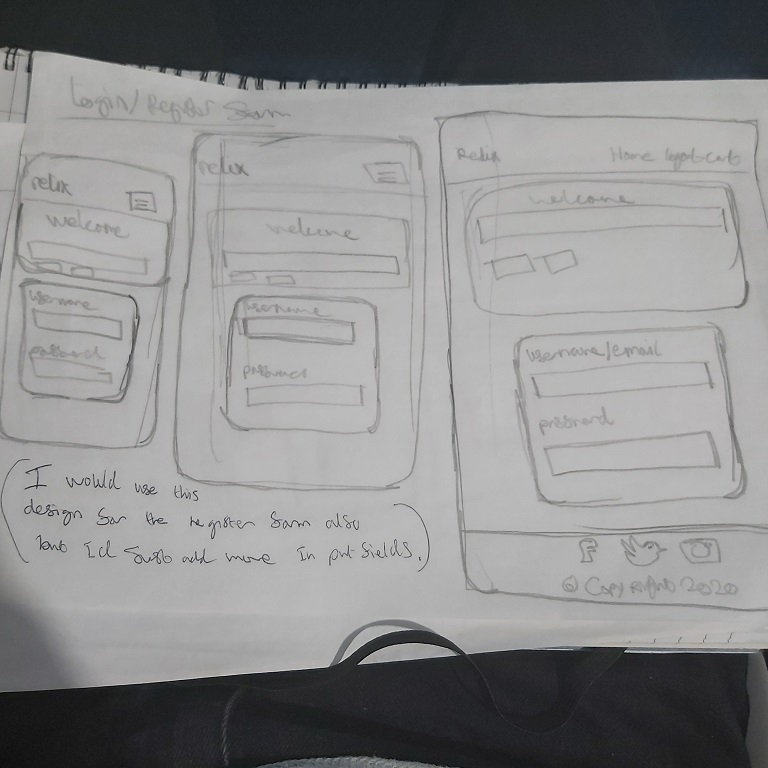 Login/Register Form
relix
welcome
username
password
relix
welcome
username
password
Relix
Home logout cart
welcome
username/email
password
© Copyright 2020
(I would use this
design for the register form also
but Id just add more In put fields.)